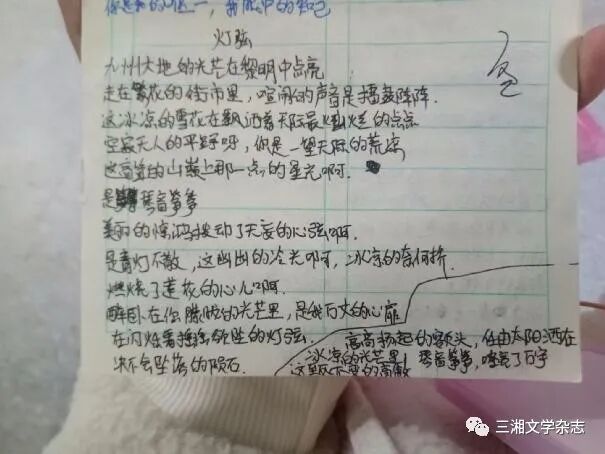 你是我的唯一，我眼中的知己
灯弦
九州大地的光芒在黎明中点亮
走在繁花的街市里，喧闹的声音是播鼓阵阵.
这冰凉的雪花在飘洒着天际最灿烂的点点
空寂无人的平野呀，你是一望无际的荒凉
这高耸的山峦上那一点的星光啊.
是琴音筝筝
美丽的惊鸿拨动了天空的心弦啊.
是青灯不散，这幽幽的冷光啊，冰凉的奈何桥.
燃烧了莲花的心儿啊.
醉卧在你朦胧的光芒里，是我万丈的心扉
在闪烁着摇摇欲坠的灯弦
决不会坠落的陨石.
高高扬起的额头，任由太阳洒在
冰凉的光芒里
琴音筝筝，嘹亮了万宇
三湘文学杂志